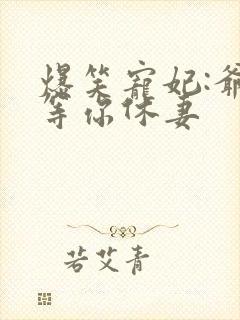 爆笑寵妃:爺
等你休妻
若艾青